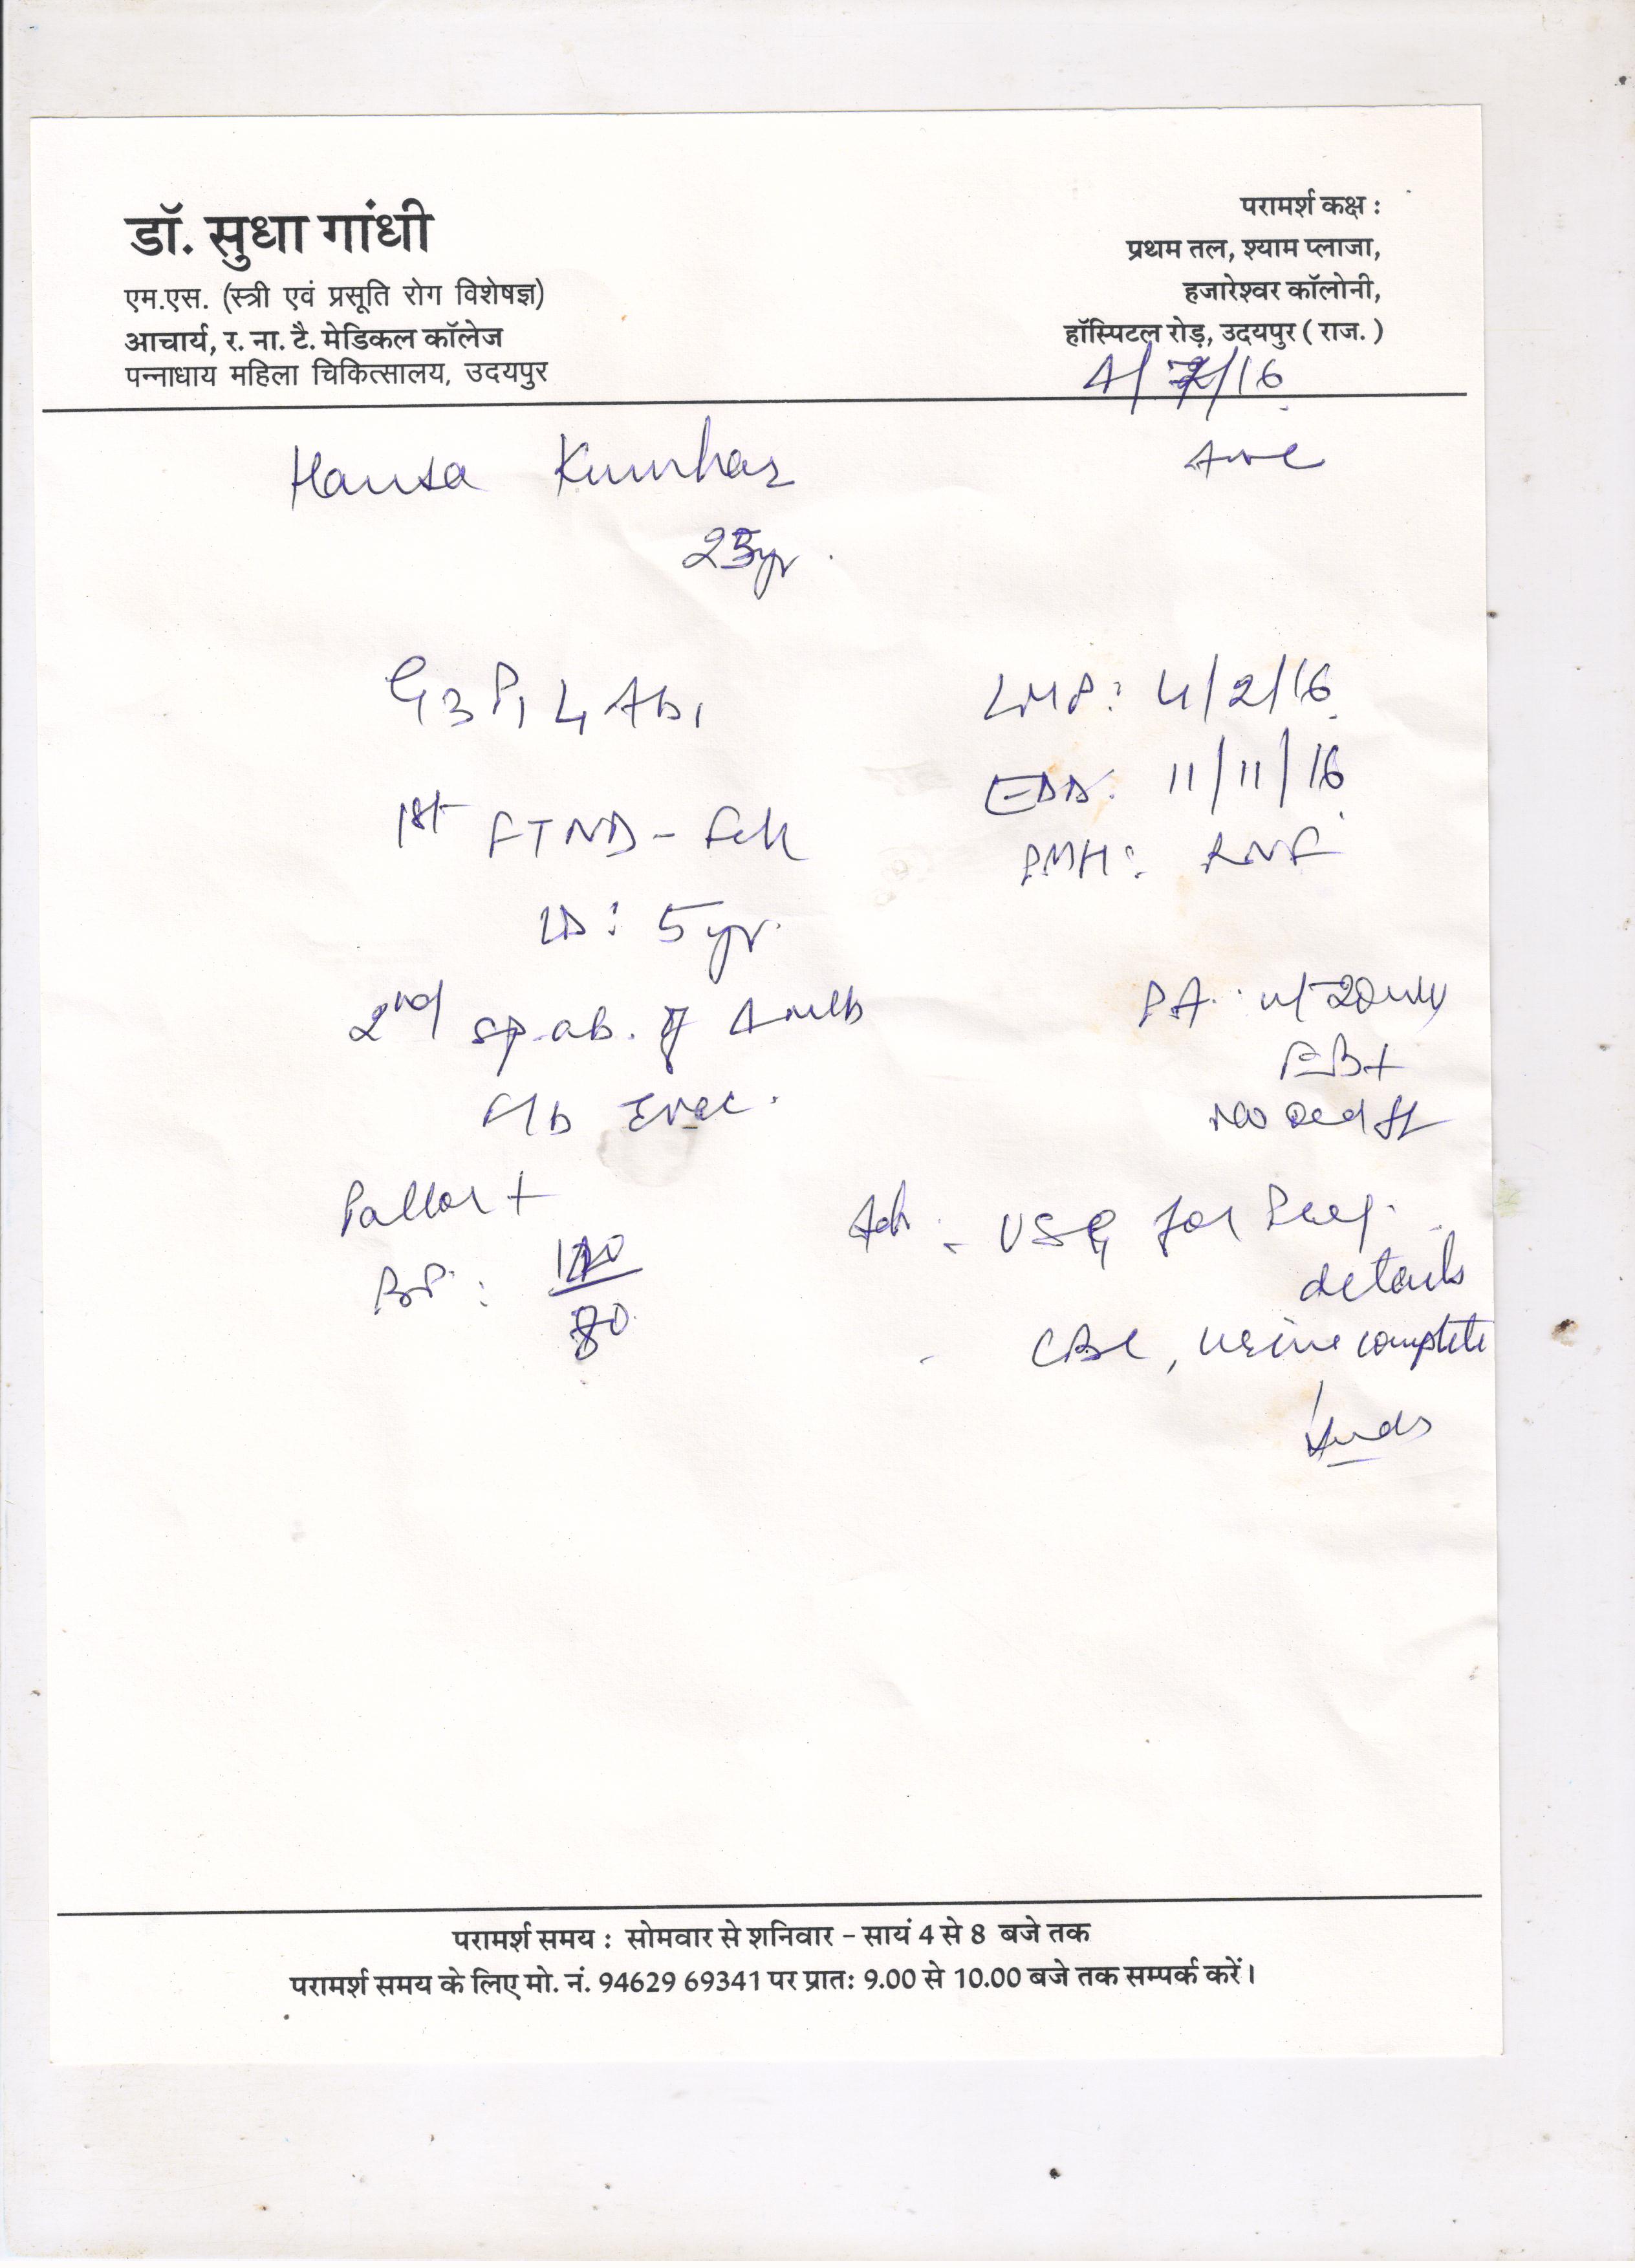 डॉ. सुधा गांधी
एम.एस. (स्त्री एवं प्रसूति रोग विशेषज्ञ)
आचार्य, र. ना. टै. मेडिकल कॉलेज
पन्नाधाय महिला चिकित्सालय, उदयपुर
परामर्श कक्ष :
प्रथम तल, श्याम प्लाजा,
हजारेश्वर कॉलोनी,
हॉस्पिटल रोड़, उदयपुर ( राज. )
4/7/16
Hansa Kumhar
ANC
25yr.
G3P1L1Ab1
1st FTND -
LB: 5yr.
2nd sp. ab. of
Evac.
Pallor +
BP:
80
LMP: 4/2/16
EDD: 11/11/16
PMH: RNF
PA:
FB+
Adv: - USG for
details
- CBC, urine complete
परामर्श समय : सोमवार से शनिवार - सायं 4 से 8 बजे तक
परामर्श समय के लिए मो. नं. 94629 69341 पर प्रातः 9.00 से 10.00 बजे तक सम्पर्क करें।